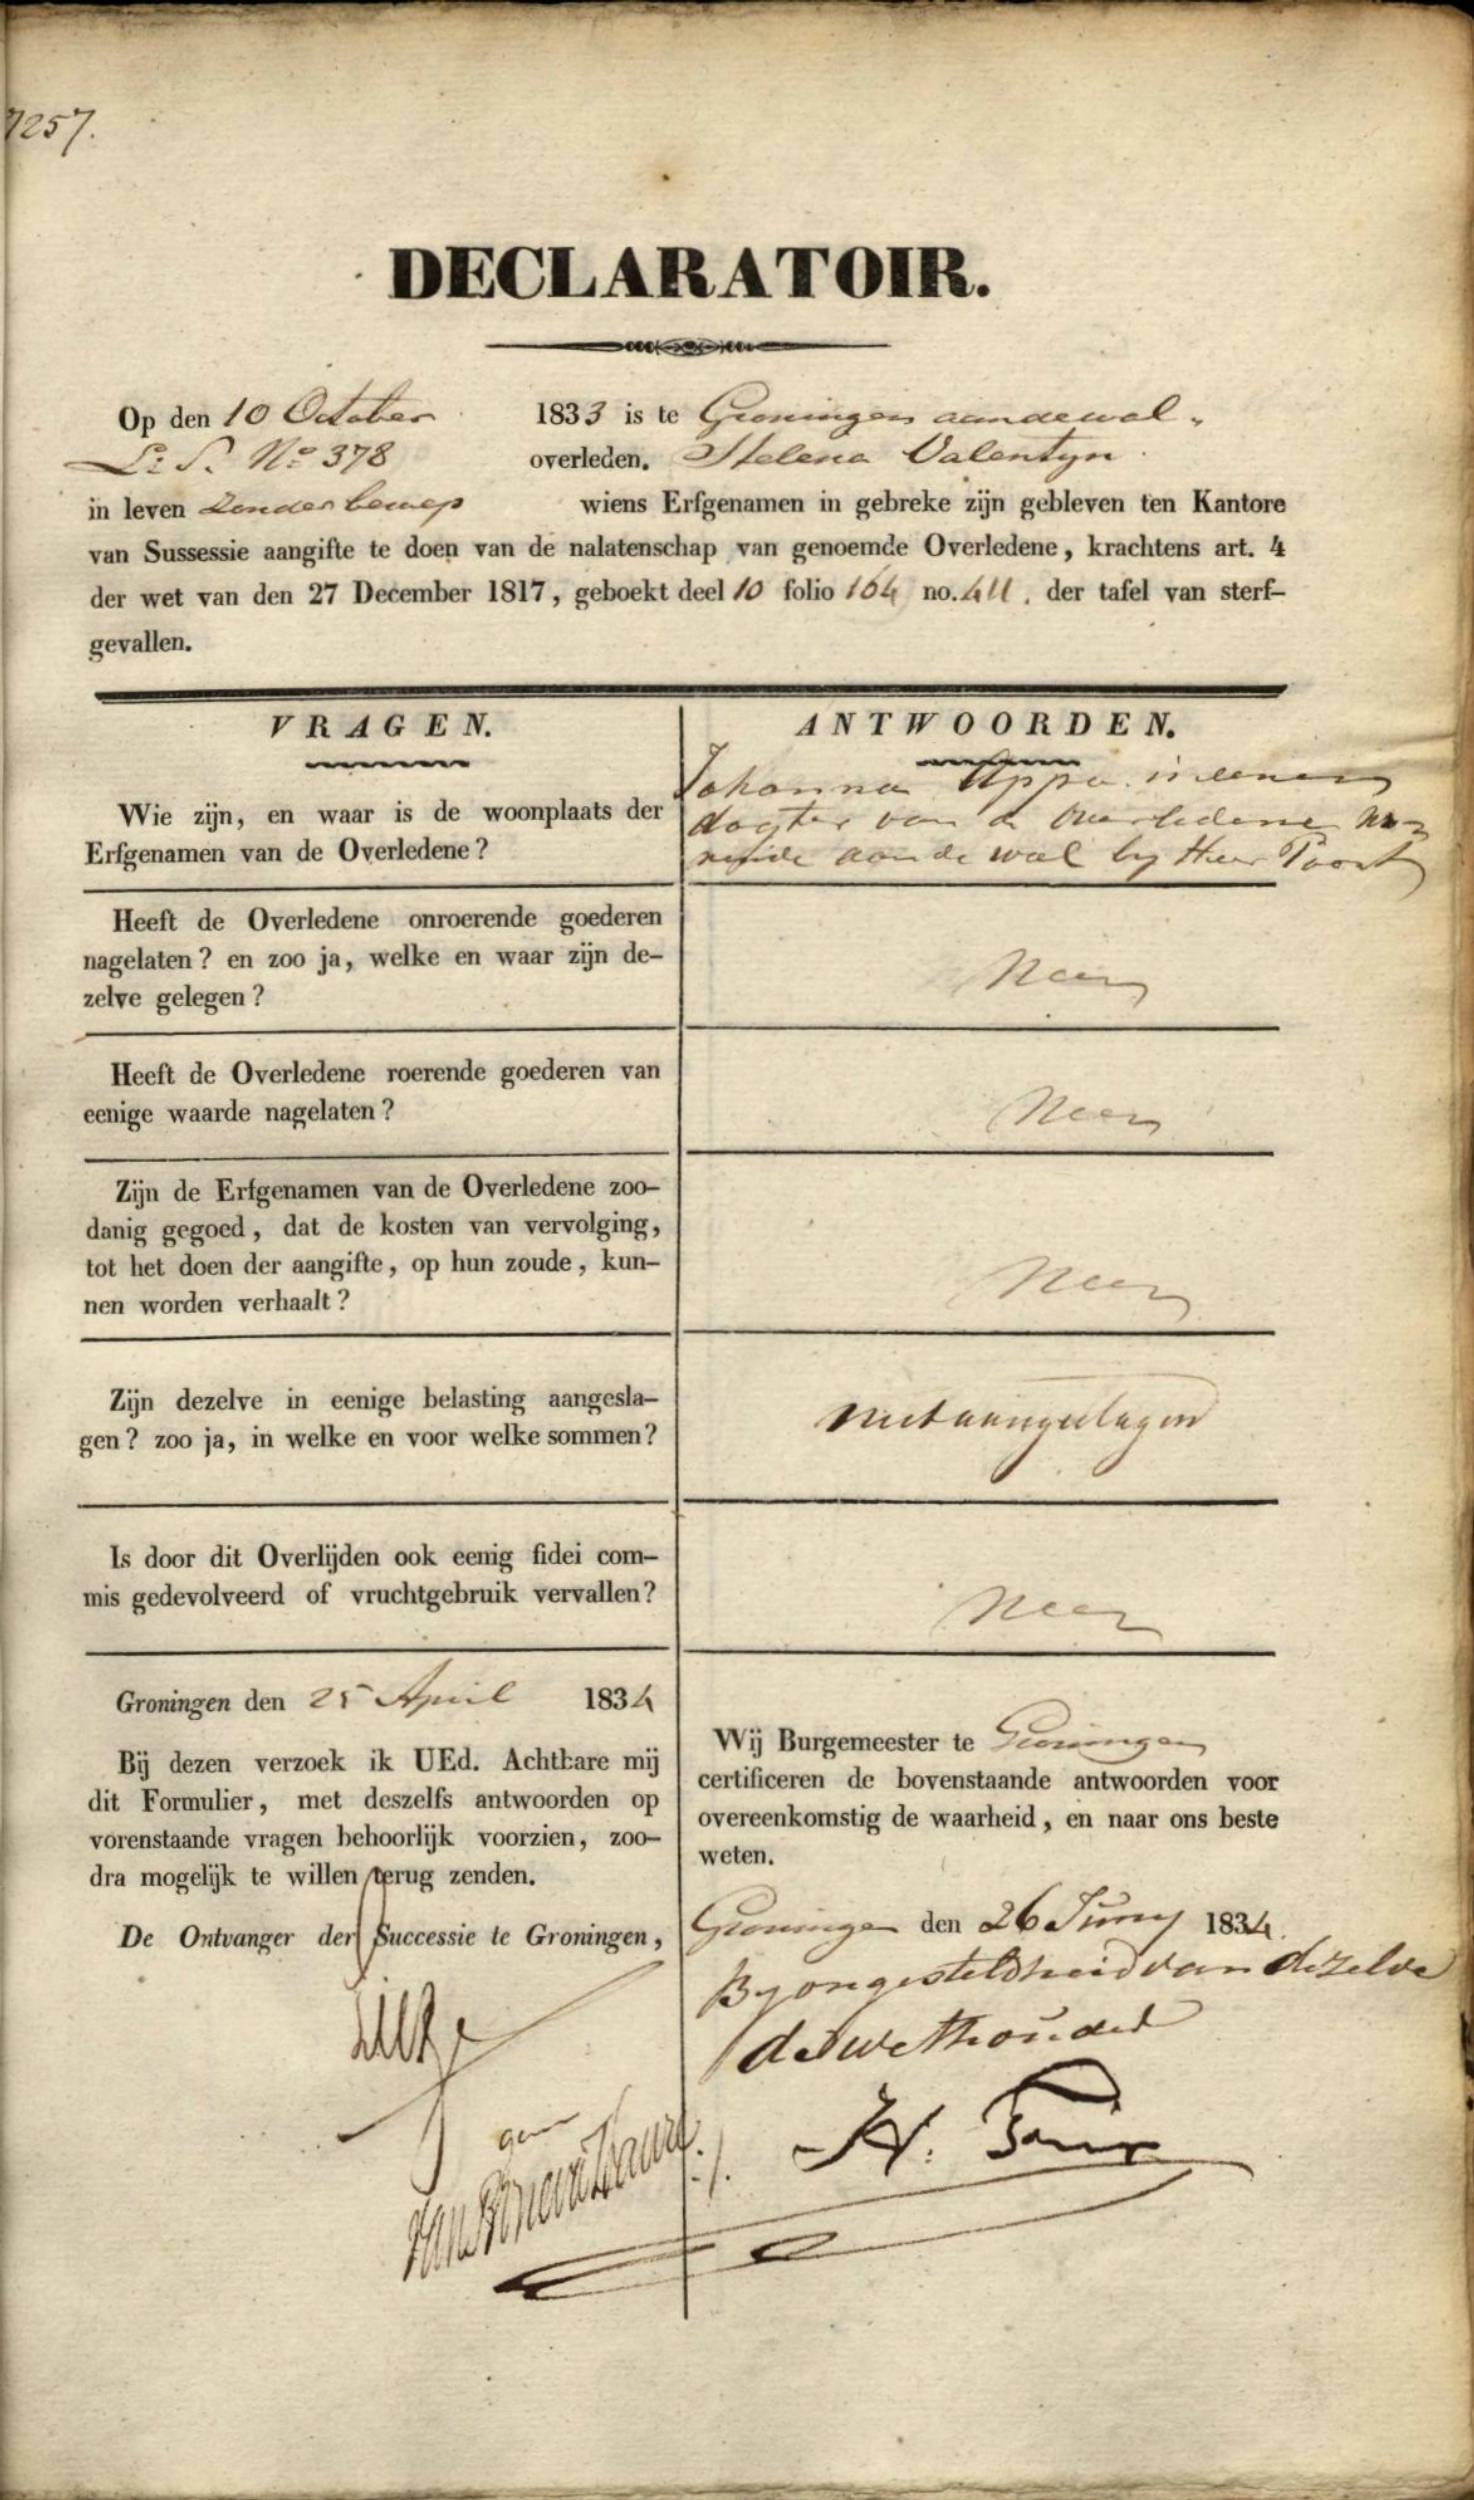 1257.
DECLARATOIR.
Op den 10 October 1833 is te Groningen aan de wal
L: S. No 378 overleden. Helena Valentyn
in leven Zonder beroep wiens Erfgenamen in gebreke zijn gebleven ten Kantore
van Sussessie aangifte te doen van de nalatenschap van genoemde Overledene, krachtens art. 4
der wet van den 27 December 1817, geboekt deel 10 folio 164 no. 411. der tafel van sterf-
gevallen.
VRAGEN.
Wie zijn, en waar is de woonplaats der
Erfgenamen van de Overledene?
Heeft de Overledene onroerende goederen
nagelaten? en zoo ja, welke en waar zijn de-
zelve gelegen?
Heeft de Overledene roerende goederen van
eenige waarde nagelaten?
Zijn de Erfgenamen van de Overledene zoo-
danig gegoed, dat de kosten van vervolging,
tot het doen der aangifte, op hun zoude, kun-
nen worden verhaalt?
Zijn dezelve in eenige belasting aangesla-
gen? zoo ja, in welke en voor welke sommen?
Is door dit Overlijden ook eenig fidei com-
mis gedevolveerd of vruchtgebruik vervallen?
Groningen den 25 April 1834
Bij dezen verzoek ik UEd. Achtbare mij
dit Formulier, met deszelfs antwoorden op
vorenstaande vragen behoorlijk voorzien, zoo-
dra mogelijk te willen terug zenden.
De Ontvanger der Successie te Groningen,
ANTWOORDEN.
Johanna Appa
dogter van de Overledene wo-
nende aan de wal by Heer Poort
Neen
Neen
Neen
niet aangeslagen
Neen
Wij Burgemeester te Groningen
certificeren de bovenstaande antwoorden voor
overeenkomstig de waarheid, en naar ons beste
weten.
Groningen den 26 Juny 1834.
By ongesteldheid van dezelve
de Wethouder
H.